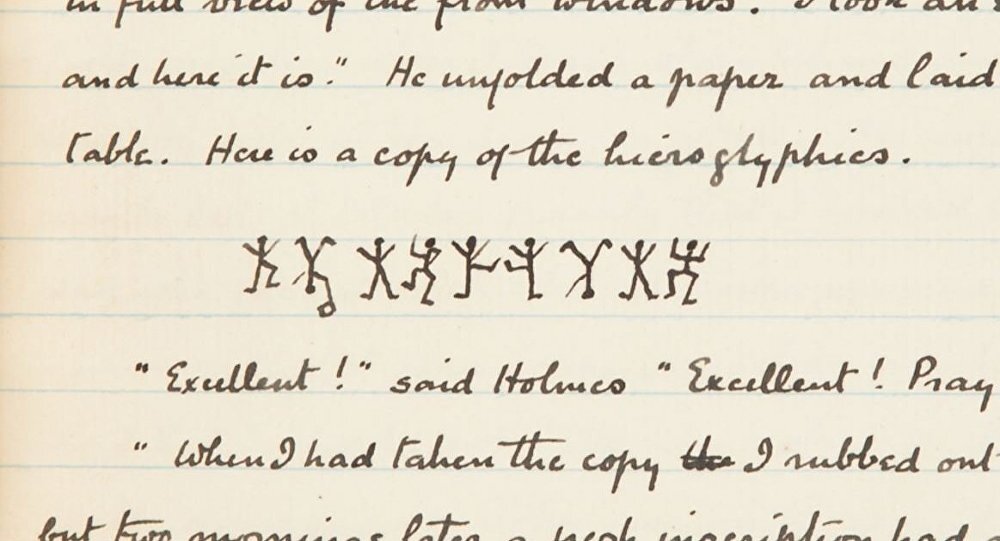 in full view of the front windows. I took an
and here it is." He unfolded a paper and laid
table. Here is a copy of the hieroglyphics.
"Excellent!" said Holmes "Excellent! Pray
"When I had taken the copy the I rubbed out
but two mornings later a fresh inscription had